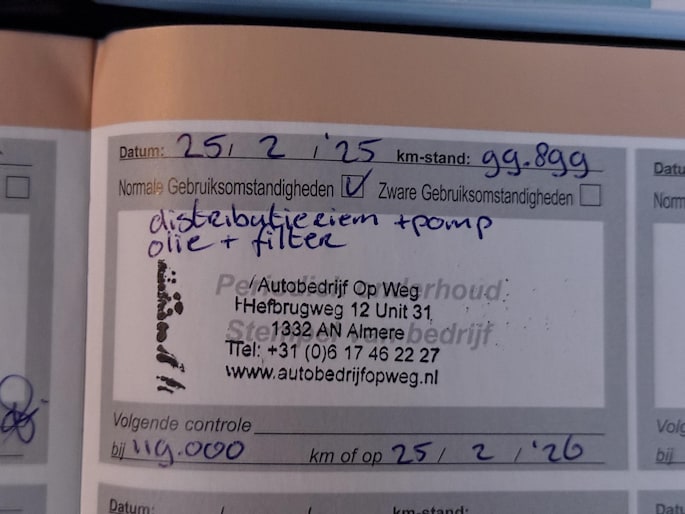 Datum: 25/ 2 / '25 km-stand: 99.899
Normale Gebruiksomstandigheden Zware Gebruiksomstandigheden
distributieriem + pomp
olie + filter
Periodiek onderhoud
Autobedrijf Op Weg
Hefbrugweg 12 Unit 31
Stempel van bedrijf
1332 AN Almere
Tel: +31 (0)6 17 46 22 27
www.autobedrijfopweg.nl
Volgende controle
bij 119.000 km of op 25 / 2 / '26
Datum: / / km-stand:
Datu
Norm
Volg
bij
Datu